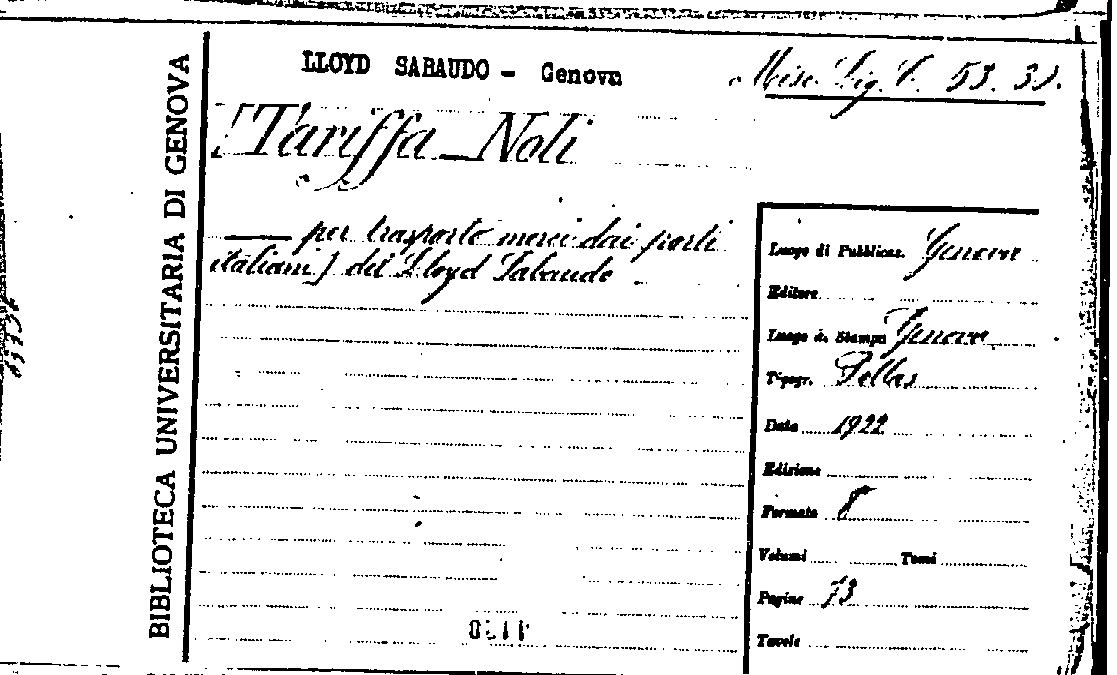 BIBLIOTECA UNIVERSITARIA DI GENOVA
LLOYD SABAUDO - Genova
Misc. Lig. C. 53. 32.
[Tariffa Noli
per trasporto merci dai porti
italiani] del Lloyd Sabaudo
Luogo di Pubblicaz. Genova
Editore
Luogo di Stampa Genova
Tipogr. Pellas
Data 1922
Edizione
Formato 8
Volumi Tomi
Pagine 73
Tavole